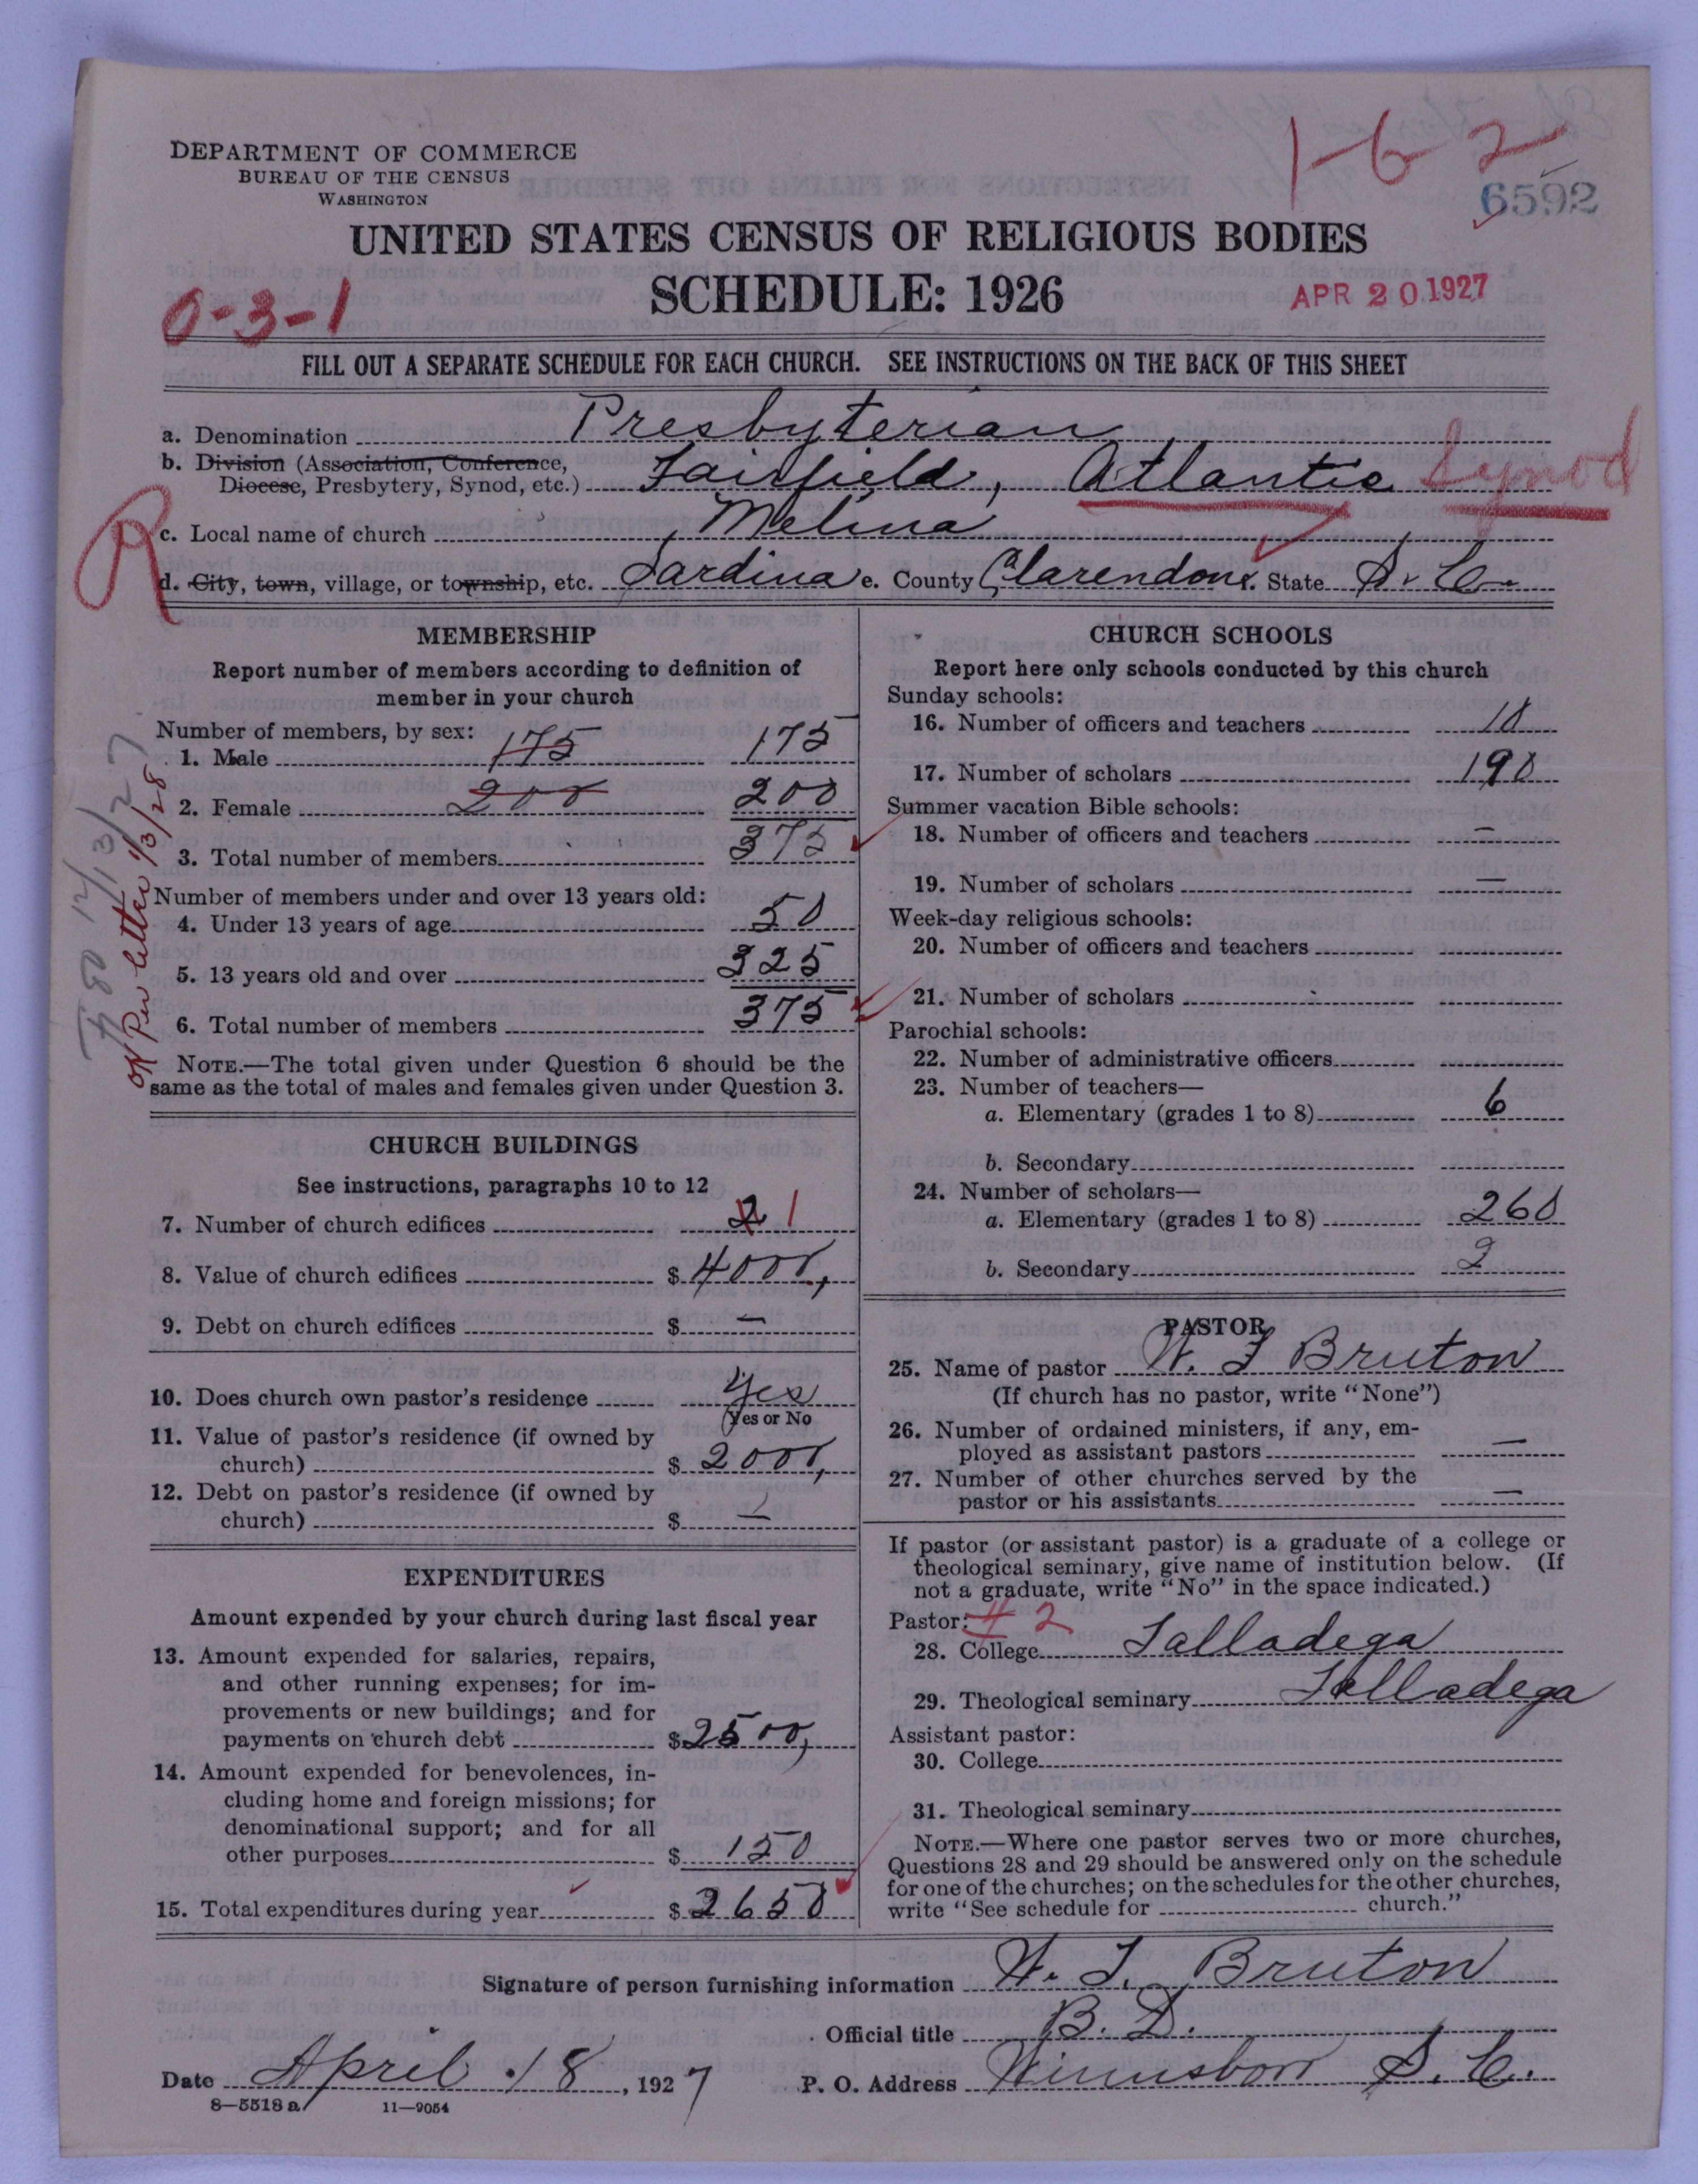 DEPARTMENT OF COMMERCE
BUREAU OF THE CENSUS
WASHINGTON
1-6 2
6592
UNITED STATES CENSUS OF RELIGIOUS BODIES
SCHEDULE: 1926
0-3-1
APR 20 1927
FILL OUT A SEPARATE SCHEDULE FOR EACH CHURCH. SEE INSTRUCTIONS ON THE BACK OF THIS SHEET
a. Denomination Presbyterian
b. Division (Association, Conference,
Diocese, Presbytery, Synod, etc.) Fairfield, Atlantic Synod
R
c. Local name of church Melina
d. City, town, village, or township, etc. Sardina e. County Clarendon f. State S. C.
MEMBERSHIP
Report number of members according to definition of
member in your church
Number of members, by sex:
1. Male 175 175
2. Female 200 200
3. Total number of members 375
Number of members under and over 13 years old:
4. Under 13 years of age 50
5. 13 years old and over 325
6. Total number of members 375
NOTE.—The total given under Question 6 should be the
same as the total of males and females given under Question 3.
12/13/27
OK Per letter 1/3/28
CHURCH BUILDINGS
See instructions, paragraphs 10 to 12
7. Number of church edifices 2 1
8. Value of church edifices $ 4000,
9. Debt on church edifices $ —
10. Does church own pastor's residence Yes
(Yes or No
11. Value of pastor's residence (if owned by
church) $ 2000,
12. Debt on pastor's residence (if owned by
church) $ —
EXPENDITURES
Amount expended by your church during last fiscal year
13. Amount expended for salaries, repairs,
and other running expenses; for im-
provements or new buildings; and for
payments on church debt $ 2500,
14. Amount expended for benevolences, in-
cluding home and foreign missions; for
denominational support; and for all
other purposes $ 150
15. Total expenditures during year $ 2650
CHURCH SCHOOLS
Report here only schools conducted by this church
Sunday schools:
16. Number of officers and teachers 10
17. Number of scholars 190
Summer vacation Bible schools:
18. Number of officers and teachers —
19. Number of scholars —
Week-day religious schools:
20. Number of officers and teachers
21. Number of scholars
Parochial schools:
22. Number of administrative officers
23. Number of teachers—
a. Elementary (grades 1 to 8) 6
b. Secondary
24. Number of scholars—
a. Elementary (grades 1 to 8) 260
b. Secondary 2
PASTOR
25. Name of pastor W. J Bruton
(If church has no pastor, write "None")
26. Number of ordained ministers, if any, em-
ployed as assistant pastors —
27. Number of other churches served by the
pastor or his assistants —
If pastor (or assistant pastor) is a graduate of a college or
theological seminary, give name of institution below. (If
not a graduate, write "No" in the space indicated.)
Pastor: # 2
28. College Talladega
29. Theological seminary Talladega
Assistant pastor:
30. College
31. Theological seminary
NOTE.—Where one pastor serves two or more churches,
Questions 28 and 29 should be answered only on the schedule
for one of the churches; on the schedules for the other churches,
write "See schedule for church."
Signature of person furnishing information W. J. Bruton
Official title B. D.
Date April 18, 1927 P. O. Address Winnsboro S. C.
8—5518 a 11—9054